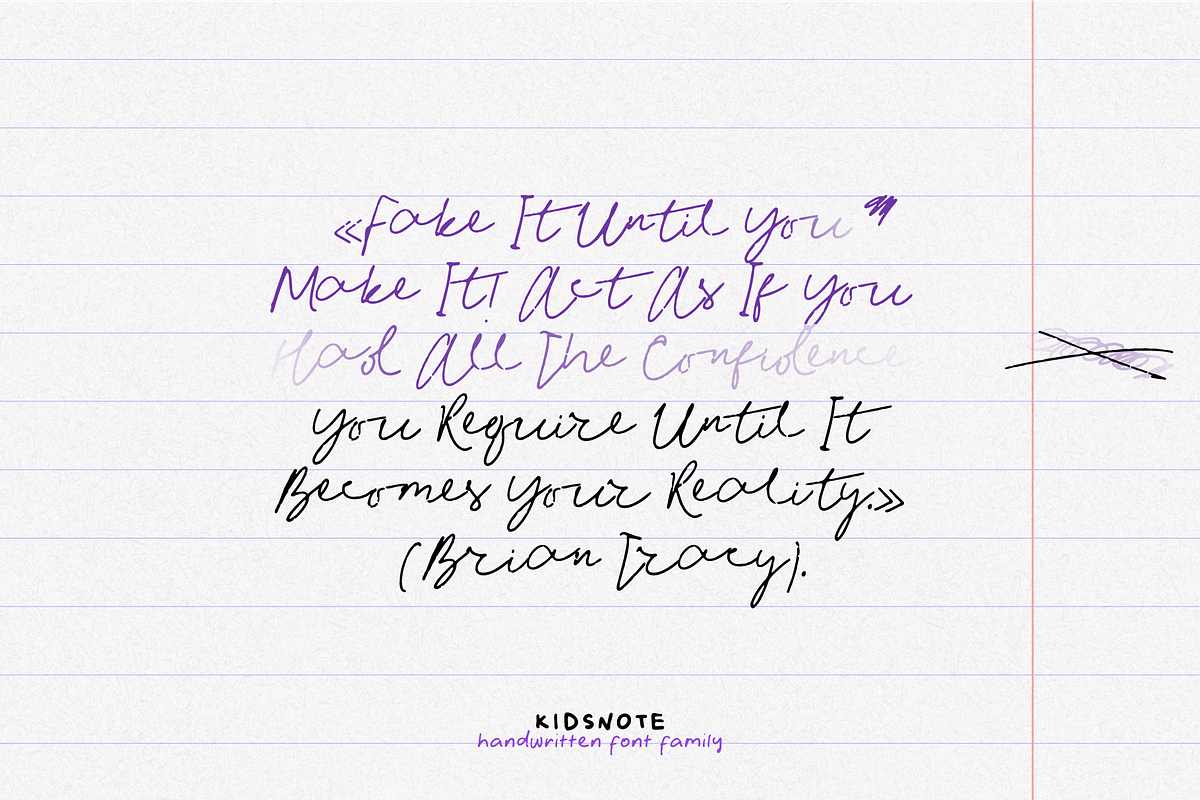 «Fake It Until You
Make It! Act As If You
Had All The Confidence
You Require Until It
Becomes Your Reality.»
(Brian Tracy).
KIDSNOTE
handwritten font family